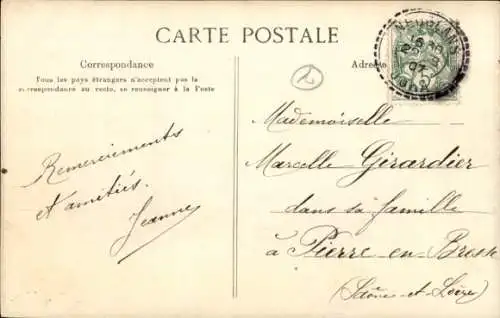 CARTE POSTALE
Correspondance
Tous les pays étrangers n'acceptent pas la
correspondance au recto, se renseigner à la Poste
Remerciements
et amitiés.
Jeanne
Adresse
Mademoiselle
Marcelle Girardier
dans sa famille
à Pierre en Bresse
(Saône-et-Loire)